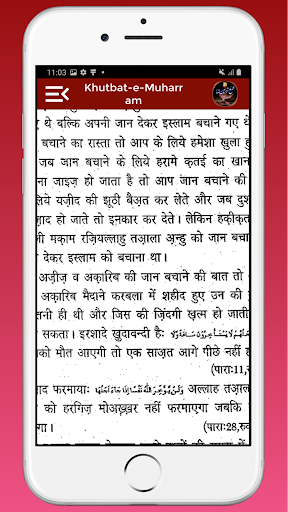 11:03
Khutbat-e-Muharr
am
र थे बल्कि अपनी जान देकर इस्लाम बचाने गए थे
बचाने का रास्ता तो आप के लिये हमेशा खुला ह
जब जान बचाने के लिये हरामे क़तई का खान
ना जाइज़ हो जाता है तो आप जान बचाने की
लिये यज़ीद की झूठी बैअ़त कर लेते और जब दुश
ज़ाद हो जाते तो इनकार कर देते। लेकिन हक़ीक़त
ली मक़ाम रज़ियल्लाहु तआ़ला अ़न्हु को जान बचा
देकर इस्लाम को बचाना था।
अज़ीज़ व अकारिब की जान बचाने की बात तो
कारिब मैदाने करबला में शहीद हुए उन की
तनी ही थी और जिस की ज़िंदगी ख़त्म हो जाती
सकता। इरशादे खुदावन्दी हैः
को मौत आएगी तो एक साअ़त आगे पीछे नहीं ह
(पाराः11,
ाद फरमायाः وَلَنْ يُؤَخِّرَ اللّٰهُ نَفْسًا إِذَا جَآءَ أَجَلُهَا अल्लाह तआ़ल
को हरगिज़ मोअख़्ख़र नहीं फरमाएगा जबकि
गा।
(पाराः28,रु